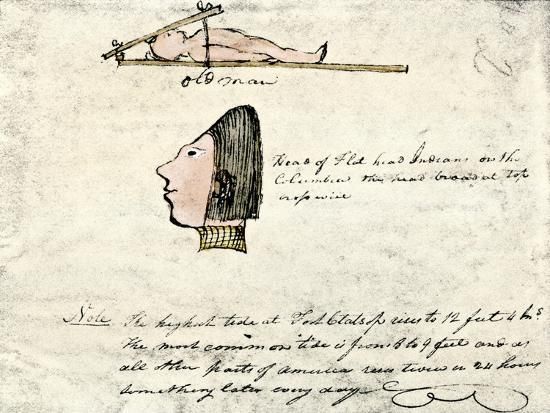 old man
Head of Flat head Indians on the
Columbia the head broad at top
crosswise
Note The highest tide at Fort Clatsop rises to 12 feet 4 Ins
The most common tide is from 8 to 9 feet and as
all other parts of America rises twice in 24 hours
something later every day